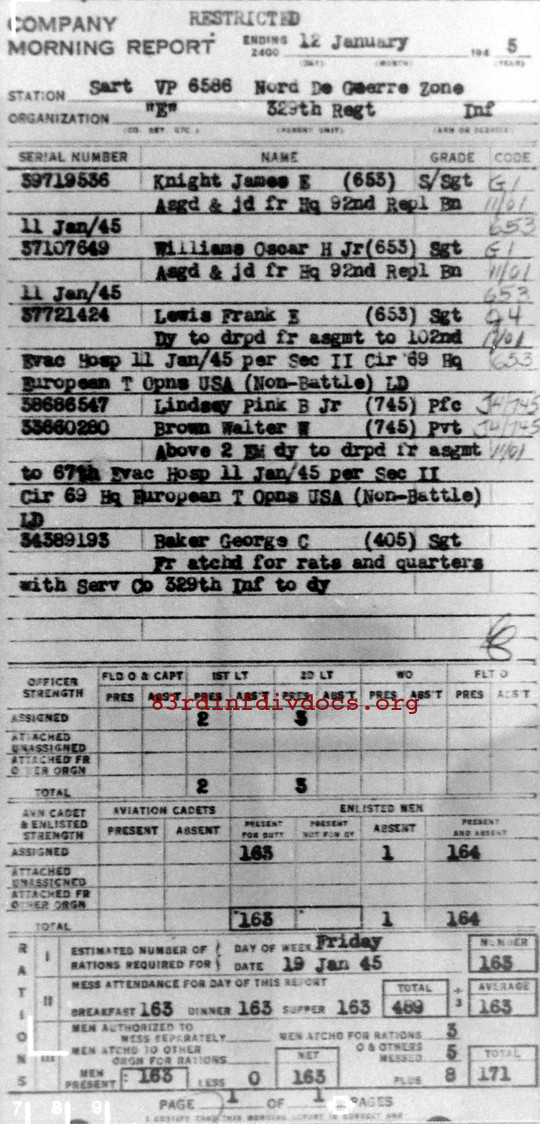 RESTRICTED
COMPANY
MORNING REPORT
ENDING 2400 12 January 194 5
(DAY) (MONTH) (YEAR)
STATION Sart VP 6586 Nord De Guerre Zone
ORGANIZATION "E" 329th Regt Inf
(CO. DET. ETC.) (PARENT UNIT) (ARM OR SERVICE)
SERIAL NUMBER NAME GRADE CODE
39719536 Knight James E (653) S/Sgt G1
Asgd & jd fr Hq 92nd Repl Bn 11/01
11 Jan/45 653
37107649 Williams Oscar H Jr(653) Sgt G1
Asgd & jd fr Hq 92nd Repl Bn 11/01
11 Jan/45 653
37721424 Lewis Frank E (653) Sgt J4
Dy to drpd fr asgmt to 102nd 11/01
Evac Hosp 11 Jan/45 per Sec II Cir 69 Hq 653
European T Opns USA (Non-Battle) LD
38686547 Lindsey Pink B Jr (745) Pfc J4/745
33660280 Brown Walter W (745) Pvt J4/745
Above 2 EM dy to drpd fr asgmt 11/01
to 67th Evac Hosp 11 Jan/45 per Sec II
Cir 69 Hq European T Opns USA (Non-Battle)
LD
34389193 Baker George C (405) Sgt
Fr atchd for rats and quarters
with Serv Co 329th Inf to dy
OFFICER STRENGTH FLD O & CAPT 1ST LT 2D LT WO FLT O
PRES ABS'T PRES ABS'T PRES ABS'T PRES ABS'T PRES ABS'T
83rdinfdivdocs.org
ASSIGNED 2 3
ATTACHED UNASSIGNED
ATTACHED FR OTHER ORGN
TOTAL 2 3
AVN CADET & ENLISTED STRENGTH AVIATION CADETS ENLISTED MEN
PRESENT ABSENT PRESENT FOR DUTY PRESENT NOT FOR DY ABSENT PRESENT AND ABSENT
ASSIGNED 163 1 164
ATTACHED UNASSIGNED
ATTACHED FR OTHER ORGN
TOTAL 163 1 164
RATIONS
I ESTIMATED NUMBER OF RATIONS REQUIRED FOR DAY OF WEEK Friday NUMBER
DATE 19 Jan 45 163
II MESS ATTENDANCE FOR DAY OF THIS REPORT TOTAL ÷ 3 AVERAGE
BREAKFAST 163 DINNER 163 SUPPER 163 489 163
III MEN AUTHORIZED TO MESS SEPARATELY MEN ATCHD FOR RATIONS 3
MEN ATCHD TO OTHER ORGN FOR RATIONS NET O & OTHERS MESSED 5 TOTAL
MEN PRESENT 163 LESS 0 163 PLUS 8 171
PAGE 1 OF 1 PAGES
I CERTIFY THAT THIS MORNING REPORT IS CORRECT AND
7 8 9